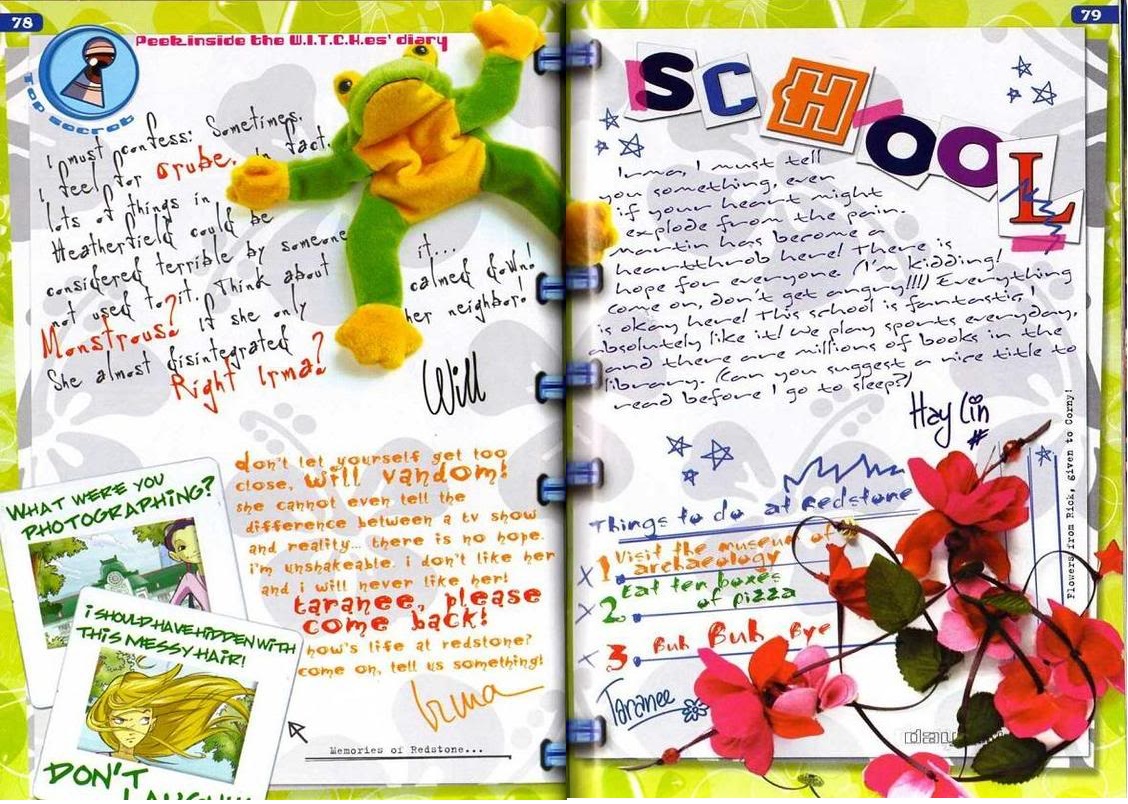 78
Peek inside the W.I.T.C.H.es' diary
Top secret
I must confess: Sometimes,
I feel for Grube. In fact,
lots of things in
Heatherfield could be
considered terrible by someone
not used to it. Think about it...
Monstrous? If she only calmed down!
She almost disintegrated her neighbor!
Right Irma?
Will
WHAT WERE YOU
PHOTOGRAPHING?
I SHOULD HAVE HIDDEN WITH
THIS MESSY HAIR!
DON'T
don't let yourself get too
close, will vandom!
she cannot even tell the
difference between a tv show
and reality... there is no hope.
i'm unshakeable. i don't like her
and i will never like her!
taranee, please
come back!
how's life at redstone?
come on, tell us something!
Irma
Memories of Redstone...
79
SCHOOL
Irma, I must tell
you something, even
if your heart might
explode from the pain.
Martin has become a
heartthrob here! There is
hope for everyone (I'm kidding!
Come on, don't get angry!!!) Everything
is okay here! This school is fantastic, I
absolutely like it! We play sports everyday,
and there are millions of books in the
library. (Can you suggest a nice title to
read before I go to sleep?)
Hay Lin
Flowers from Rick, given to Corny!
Things to do at Redstone
x 1. Visit the museum of
archaeology
x 2. Eat ten boxes
of pizza
x 3. Buh Buh Bye
Taranee